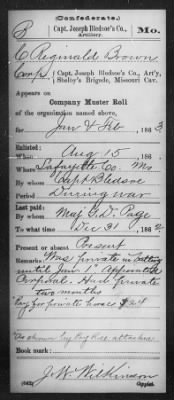 (Confederate.)
B Capt. Joseph Bledsoe's Co., Mo.
Artillery.
C Reginald Brown
Corp, Capt. Joseph Bledsoe's Co., Art'y,
Shelby's Brigade, Missouri Cav.
Appears on
Company Muster Roll
of the organization named above,
for Jan & Feb, 1863.
Enlisted:
When Aug 15, 186
Where Lafayette Co. Mo
By whom Capt Bledsoe
Period During war
Last paid:
By whom Maj G. D. Page
To what time Dec 31, 1862.
Present or absent Present
Remarks: Was private in Battery
until Jan 1st Appointed
Corporal. Had private
two months
Pay for private horse $24
As shown by Pay Roll attached
Book mark:
J. W. Wilkinson
(642) Copyist.